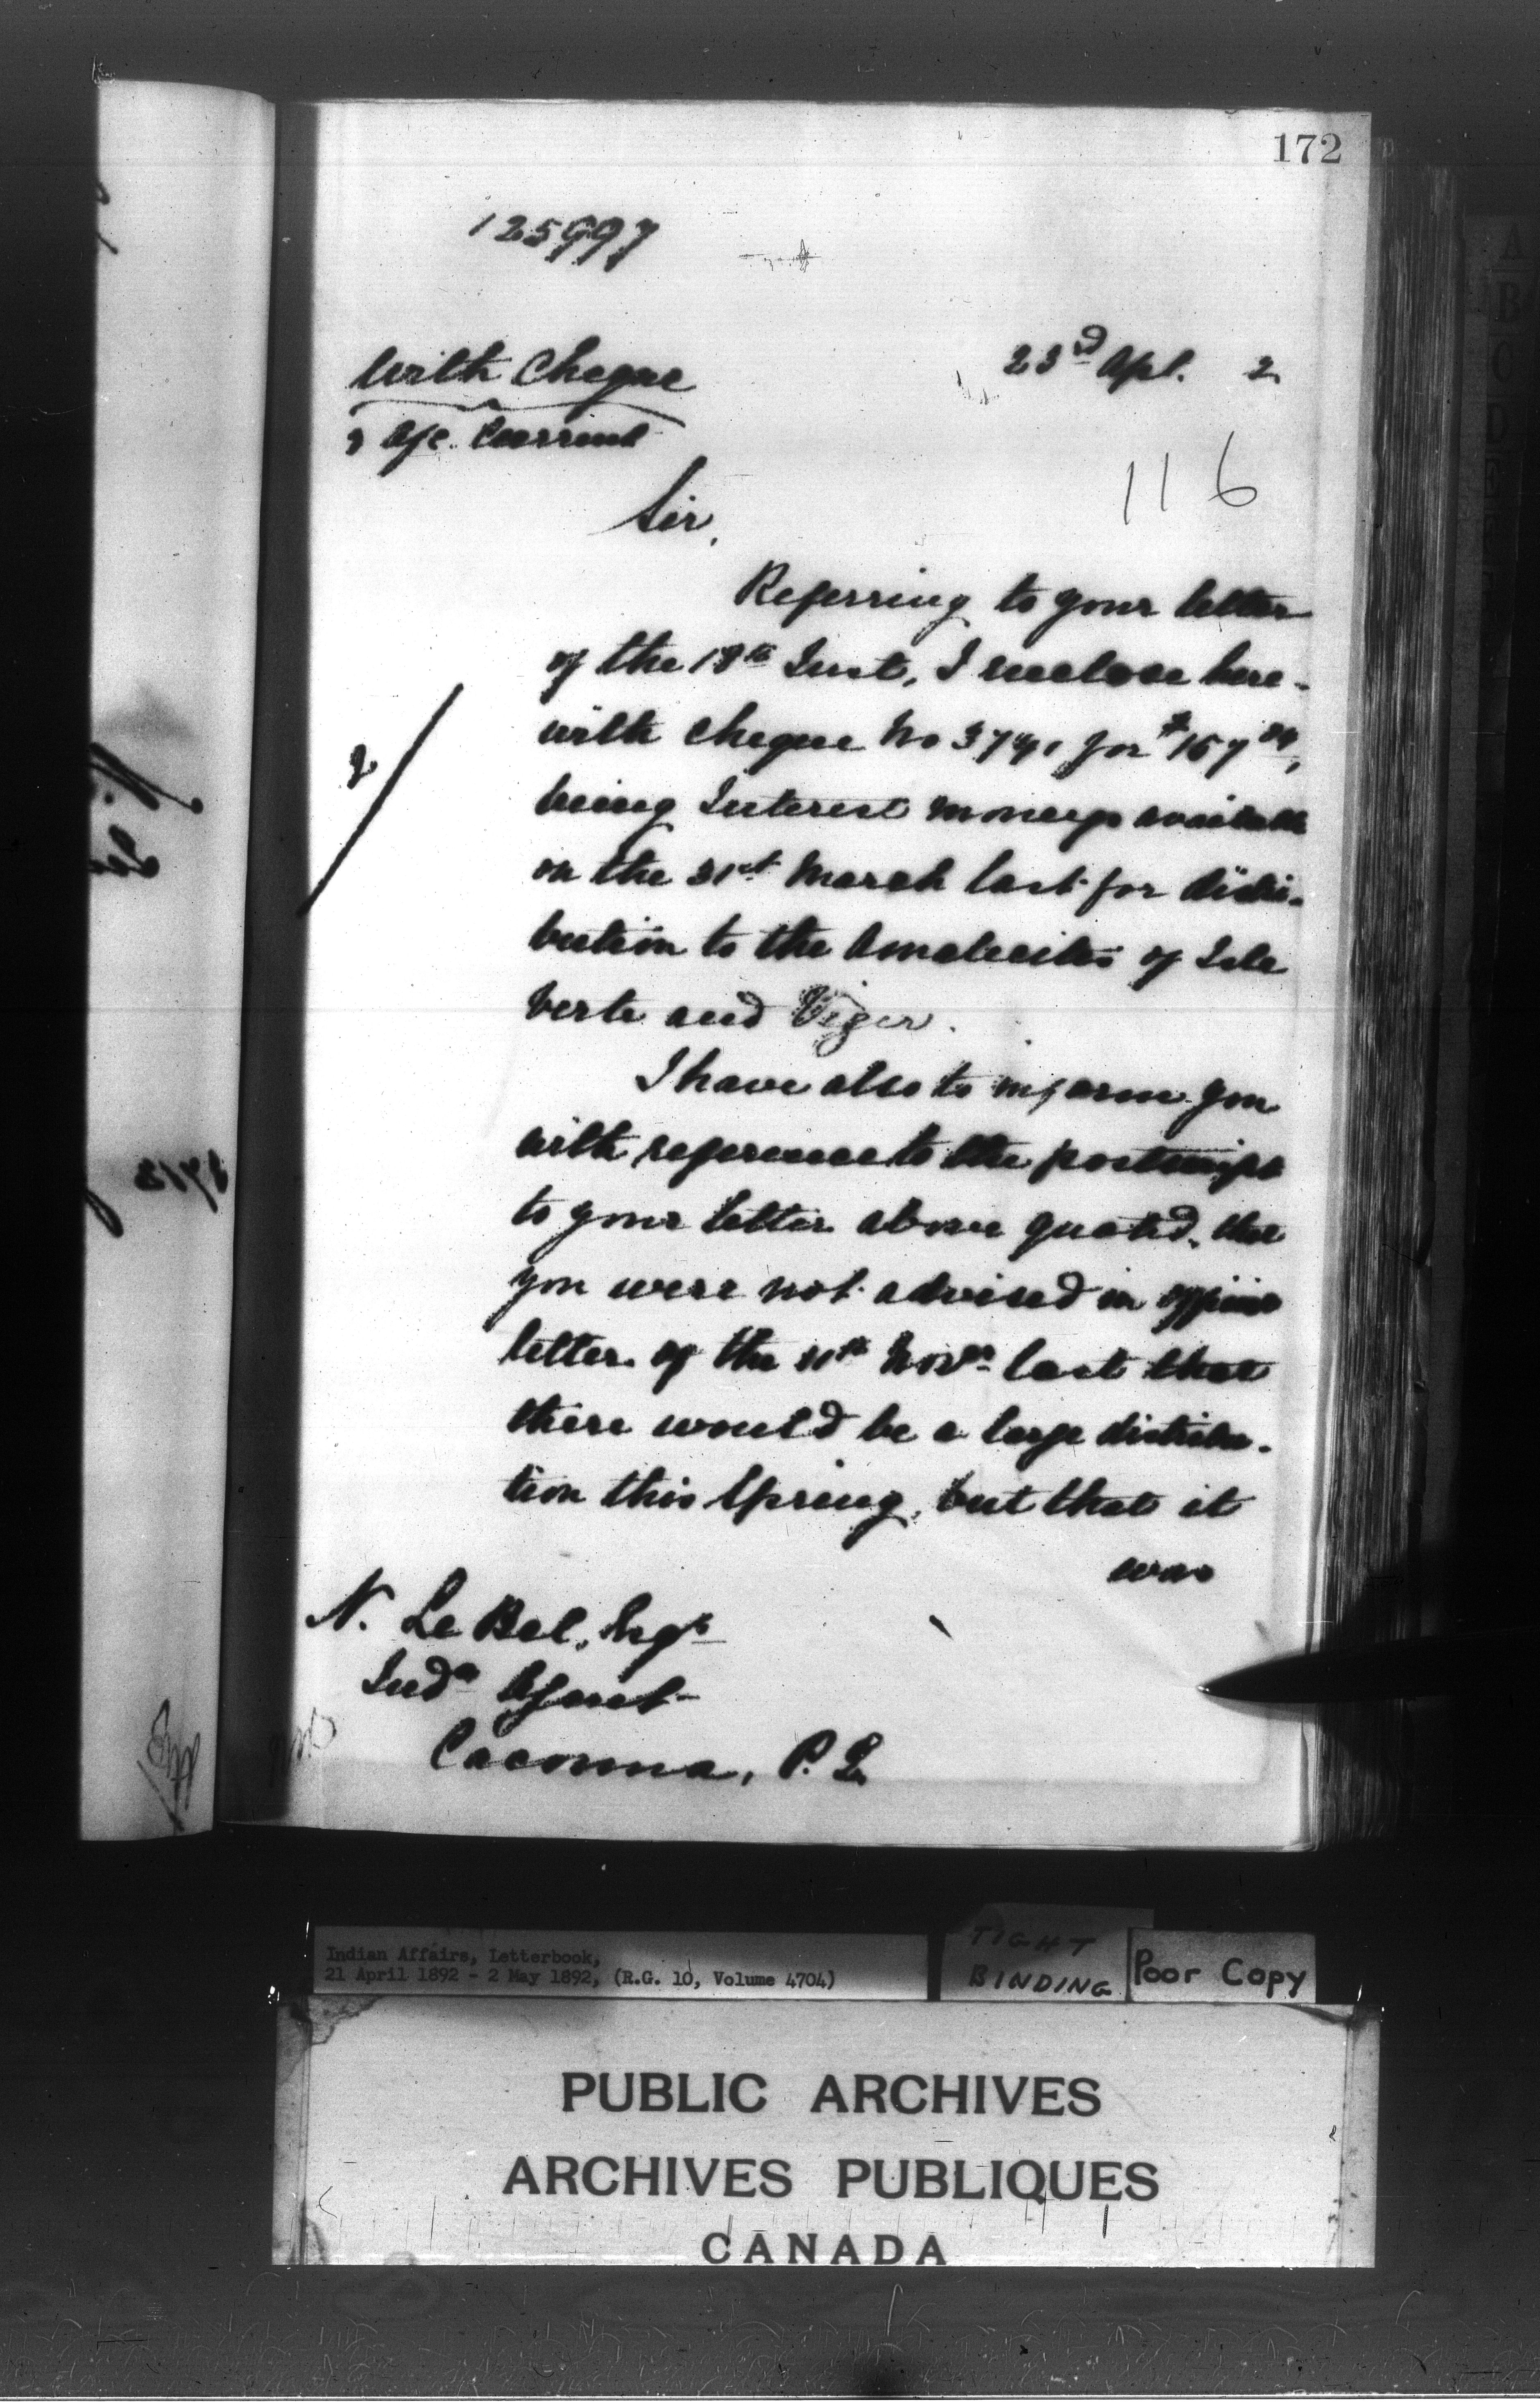 172
125997
With Cheque
& a/c. Current
23rd Apl. 2
116
Sir,
Referring to your letter
of the 18th Inst, I enclose here-
with cheque No for
being Interest moneys available
on the 31st March last for distri-
bution to the Amalecites of Isle
Verte and Viger.
I have also to inform you
with reference to the postscript
to your letter above quoted, that
you were not advised in office
letter of the Novr last that
there would be a large distribu-
tion this Spring, but that it
was
2
N. Le Bel, Esqr
Indn Agent
Cacouna, P.Q.
Indian Affairs, Letterbook,
21 April 1892 - 2 May 1892, (R.G. 10, Volume 4704)
TIGHT
BINDING
Poor Copy
PUBLIC ARCHIVES
ARCHIVES PUBLIQUES
CANADA